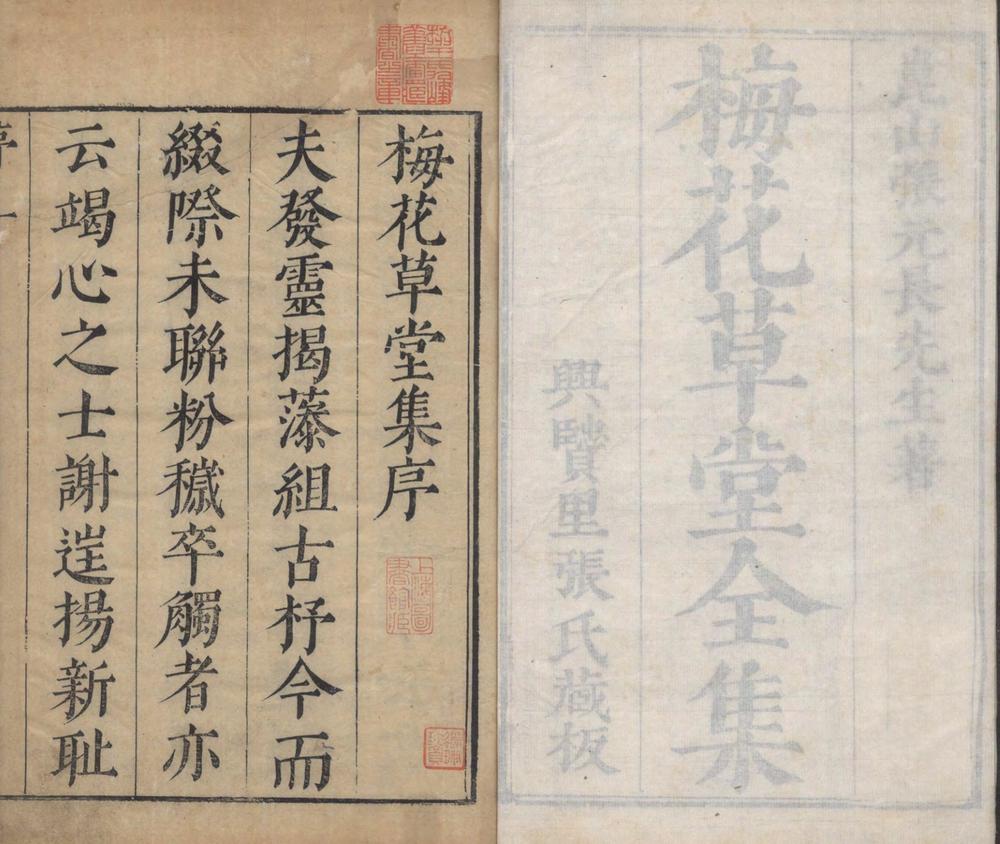 崑山張元長先生著
梅花草堂全集
興賢里張氏藏板
梅花草堂集序
夫發靈揭藻組古杼今而
綴際未聯粉穢卒觸者亦
云竭心之士謝逞揚新耻
上海圖書館藏